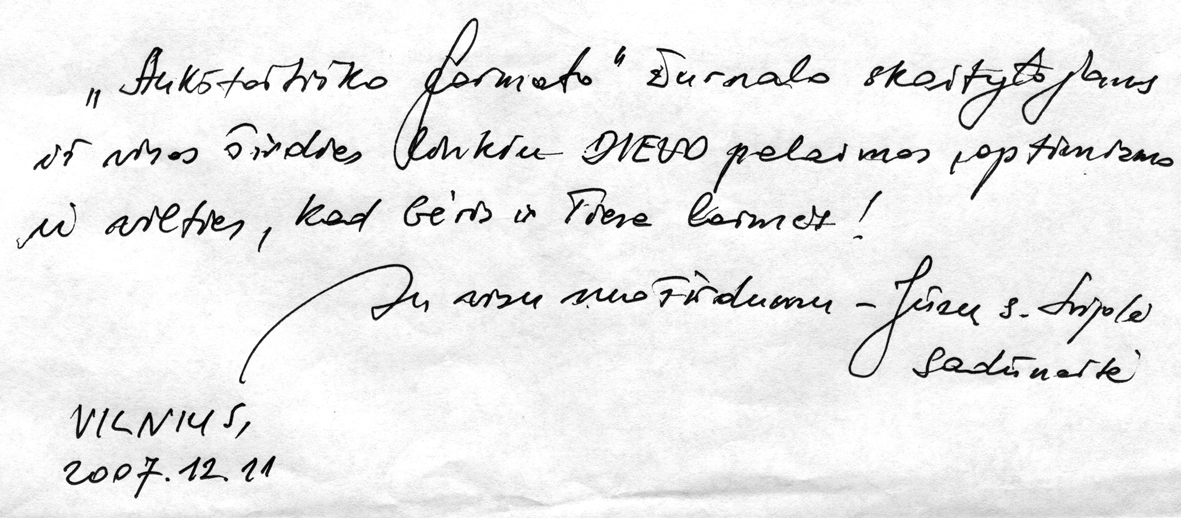 „Aukštaitiško formato“ žurnalo skaitytojams
iš visos širdies linkiu DIEVO palaimos, optimizmo
ir vilties, kad Gėris ir Tiesa laimės!
Su visu nuoširdumu – Jūsų s. Nijolė
Sadūnaitė
VILNIUS,
2007.12.11